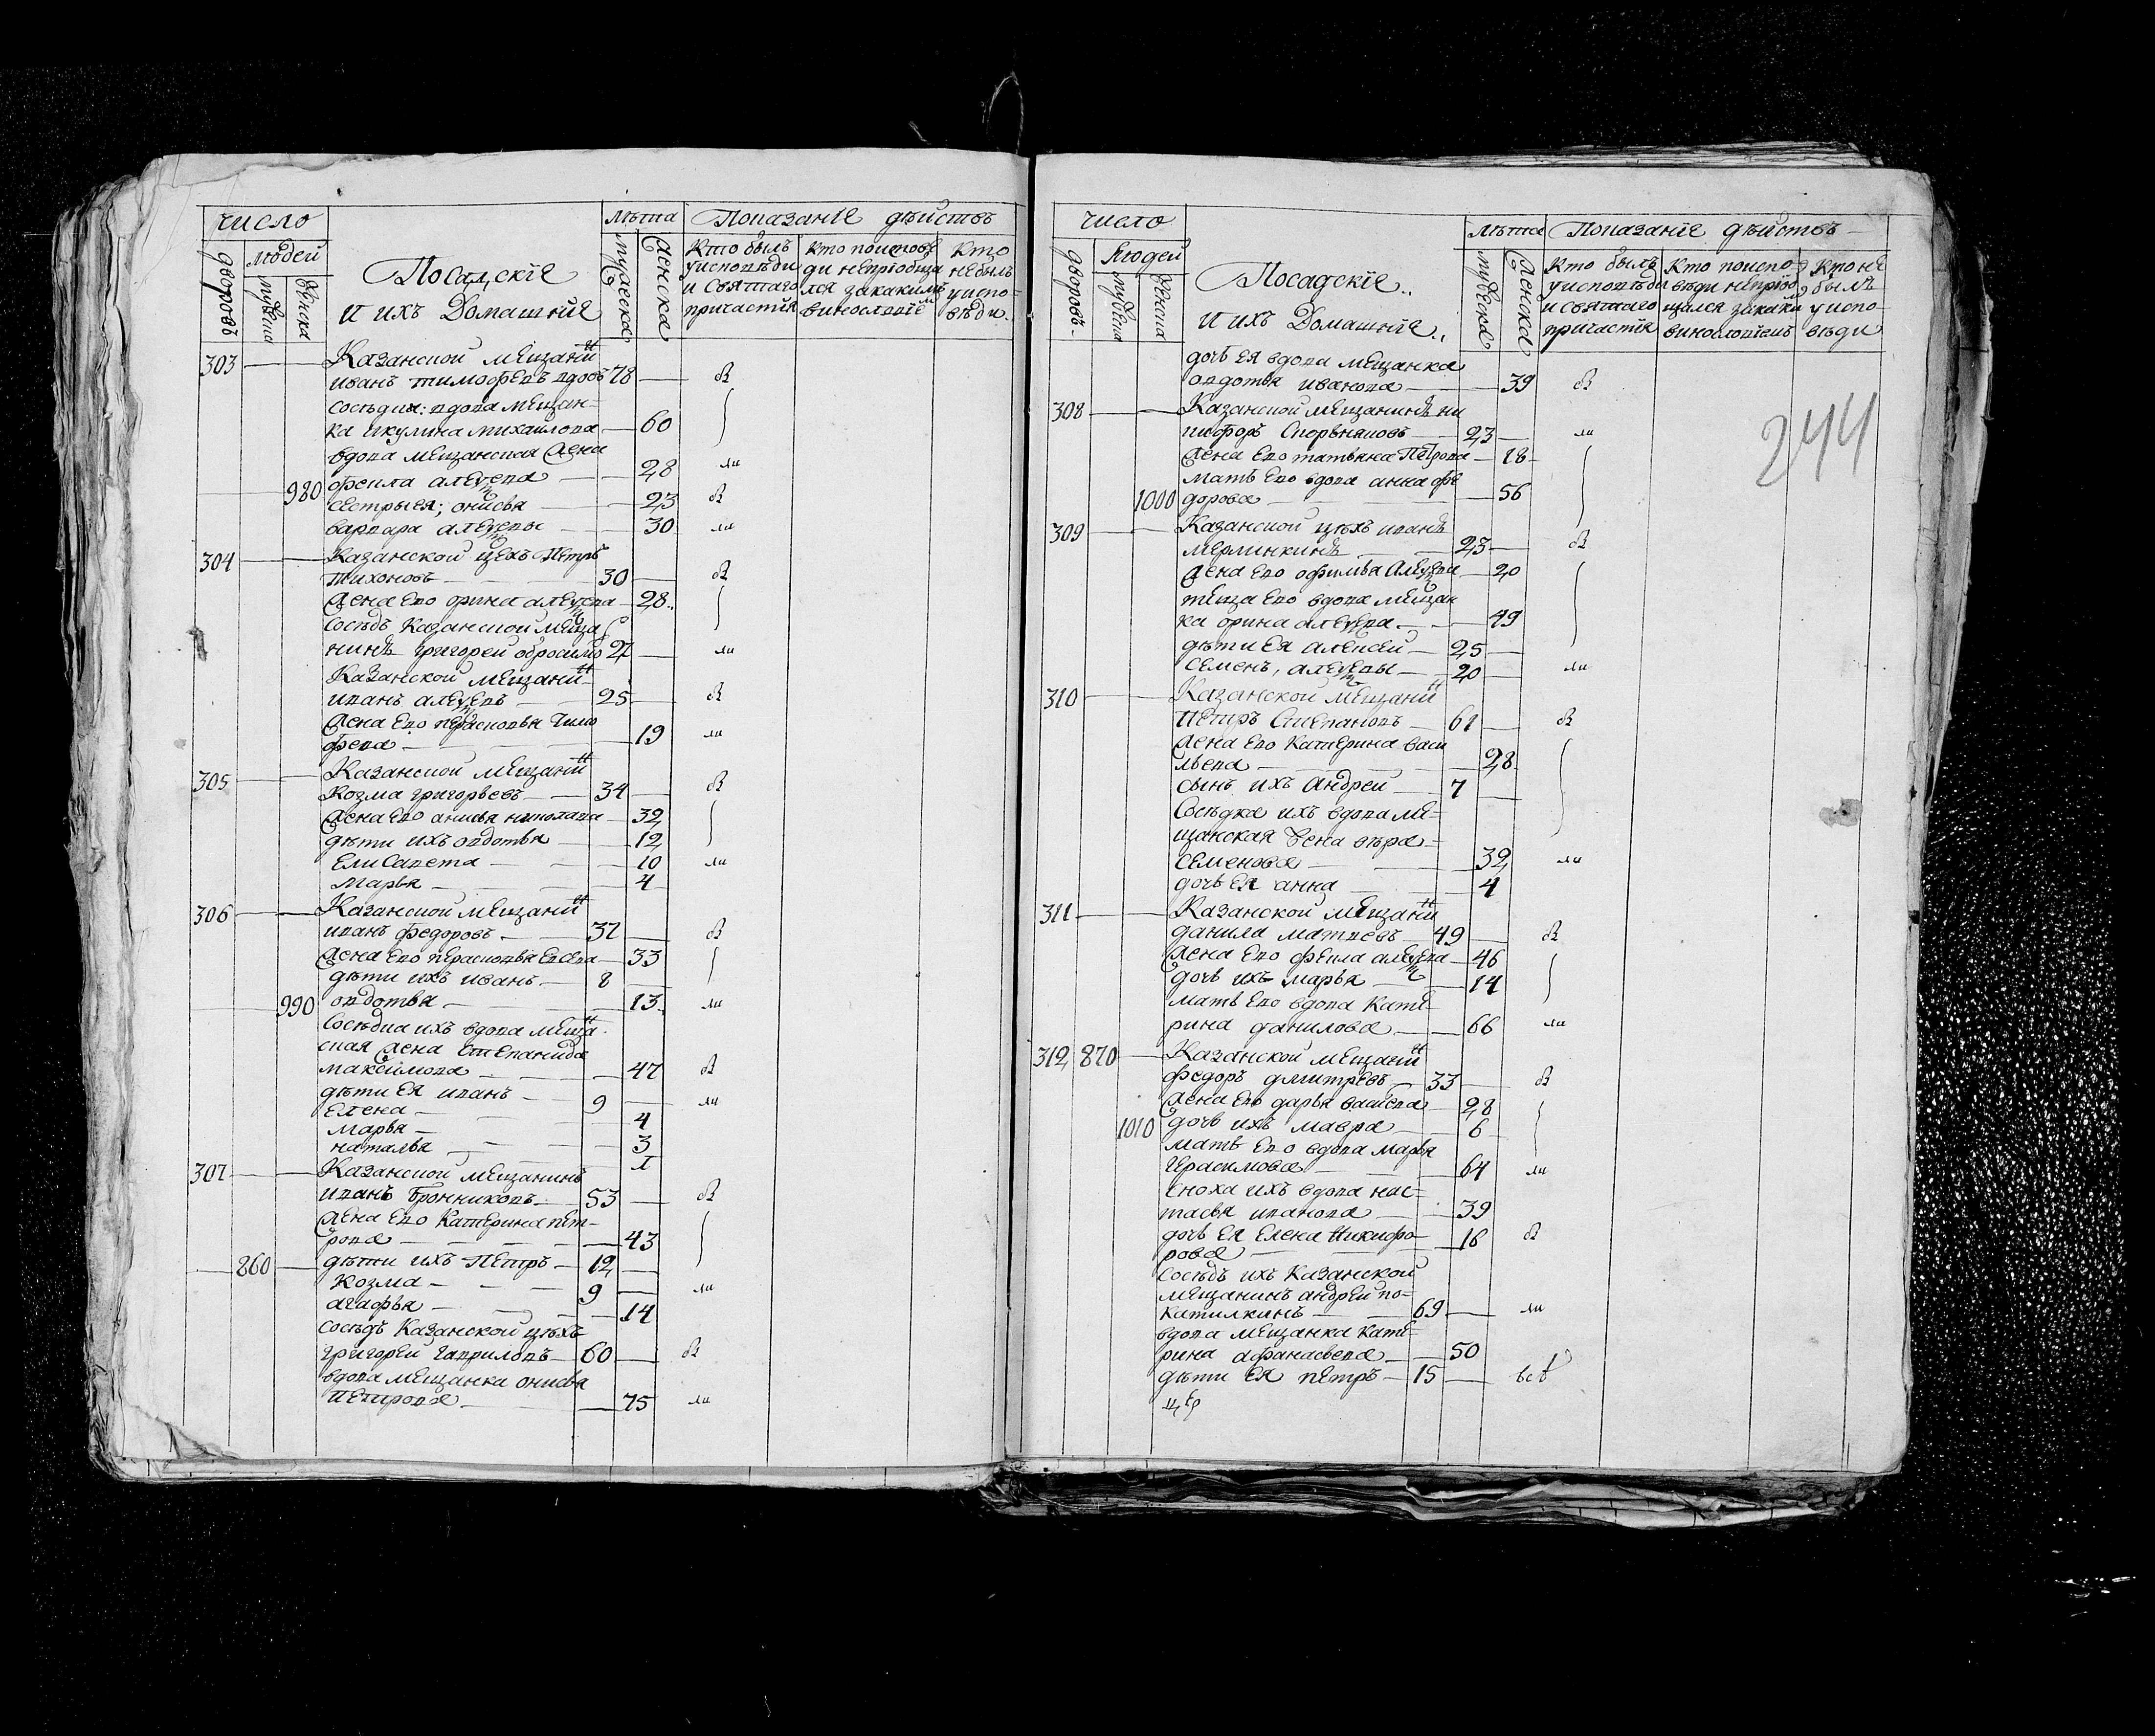 число
людей
дворовъ
мужеска
женска
Посадскїе
и ихъ Домашнїе
лѣта
мужеска
женска
Показанїе дѣиствъ
Кто былъ
у исповѣди
и святаго
причастїя
кто по исповѣ
ди не прїобща
лся за какимъ
винословїе
Кто
не былъ
у испо-
вѣди.
303 Казанской мещани
иванъ тимофеевъ вдовъ 78 в
сосѣдка: вдова мещан-
ка акулина михаилова 60
вдова мещанская жена
офекла алеѯева 28 ли
980 сестры ея; онисья 23 в
варвара алеѯевы 30 ли
304 Казанской цехъ Петръ
Тихоновъ 30 в
жена ево орина алеѯева 28
Сосѣдъ Казанской меща
нинъ григореи обросимо 27 ли
Казанской мещани
иванъ алеѯевъ 25 в
жена ево перасковья тимо
феева 19 ли
305 Казанской мещани
Козма григорьевъ 34 в
жена ево анисья николаева 32
дѣти ихъ овдотья 12
елисавета 10 ли
марья 4
306 Казанской мещани
иванъ федоровъ 37 в
жена ево перасковья евсева 33
дѣти ихъ иванъ 8
990 овдотья 13 ли
Сосѣдка ихъ вдова меща
ская жена степанида
максимова 47 в
дѣти ея иванъ 9 ли
елена 4
марья 3
наталья 1
307 Казанской мещанинъ
иванъ бронниковъ 53 в
жена ево Катерина пет-
рова 43
860 дѣти ихъ Петръ 12
Козма 9 ли
агафья 14
сосѣдъ Казанской цѣхъ
григореи гавриловъ 60 в
вдова мещанка онисья
петрова 75 ли
число
людей
дворовъ
мужеска
женска
Посадскїе
и ихъ Домашнїе
лѣта
мужеска
женска
Показанїе дѣиствъ
Кто былъ
у исповѣди
и святаго
причастїя
Кто по испо-
вѣди не прїоб
щался за каки
винословїемъ
Кто не
былъ
у испо-
вѣди
244
дочь ея вдова мещанка
овдотья иванова 39 в
308 Казанской мещанинъ ни
кифоръ Скорняковъ 23 ли
жена ево татьяна Петрова 18
мать ево вдова анна фе
1000 дорова 56
309 Казанской цѣхъ иванъ
мерлинкинъ 23 в
жена ево офимья алеѯева 20
теща ево вдова мещан
ка орина алеѯева 49
дѣти ея алексеи 25
семенъ, алеѯевы 20 ли
310 Казанской мещани
Петръ Степановъ 61 в
жена ево Катерина васи
льева 28
сынъ ихъ андреи 7
Сосѣдка ихъ вдова ме-
щанская жена вѣра
семенова 32 ли
дочь ея анна 4
311 Казанской мещани
данила матвеевъ 49 в
жена ево фекла алеѯева 46
дочь ихъ марья 14
мать ево вдова Кате
рина данилова 66 ли
312 870 Казанской мещани
федоръ дмитревъ 33 в
жена ево дарья васиева 28
1010 дочь ихъ мавра 6
мать ево вдова марья
герасимова 64 ли
сноха ихъ вдова нас-
тасья иванова 39
дочь ея елена никифо-
рова 16 в
Сосѣдъ ихъ Казанской
мещанинъ андреи по-
катилкинъ 69 ли
вдова мещанка кате
рина афанасьева 50
дѣти ея петръ 15 всѣ